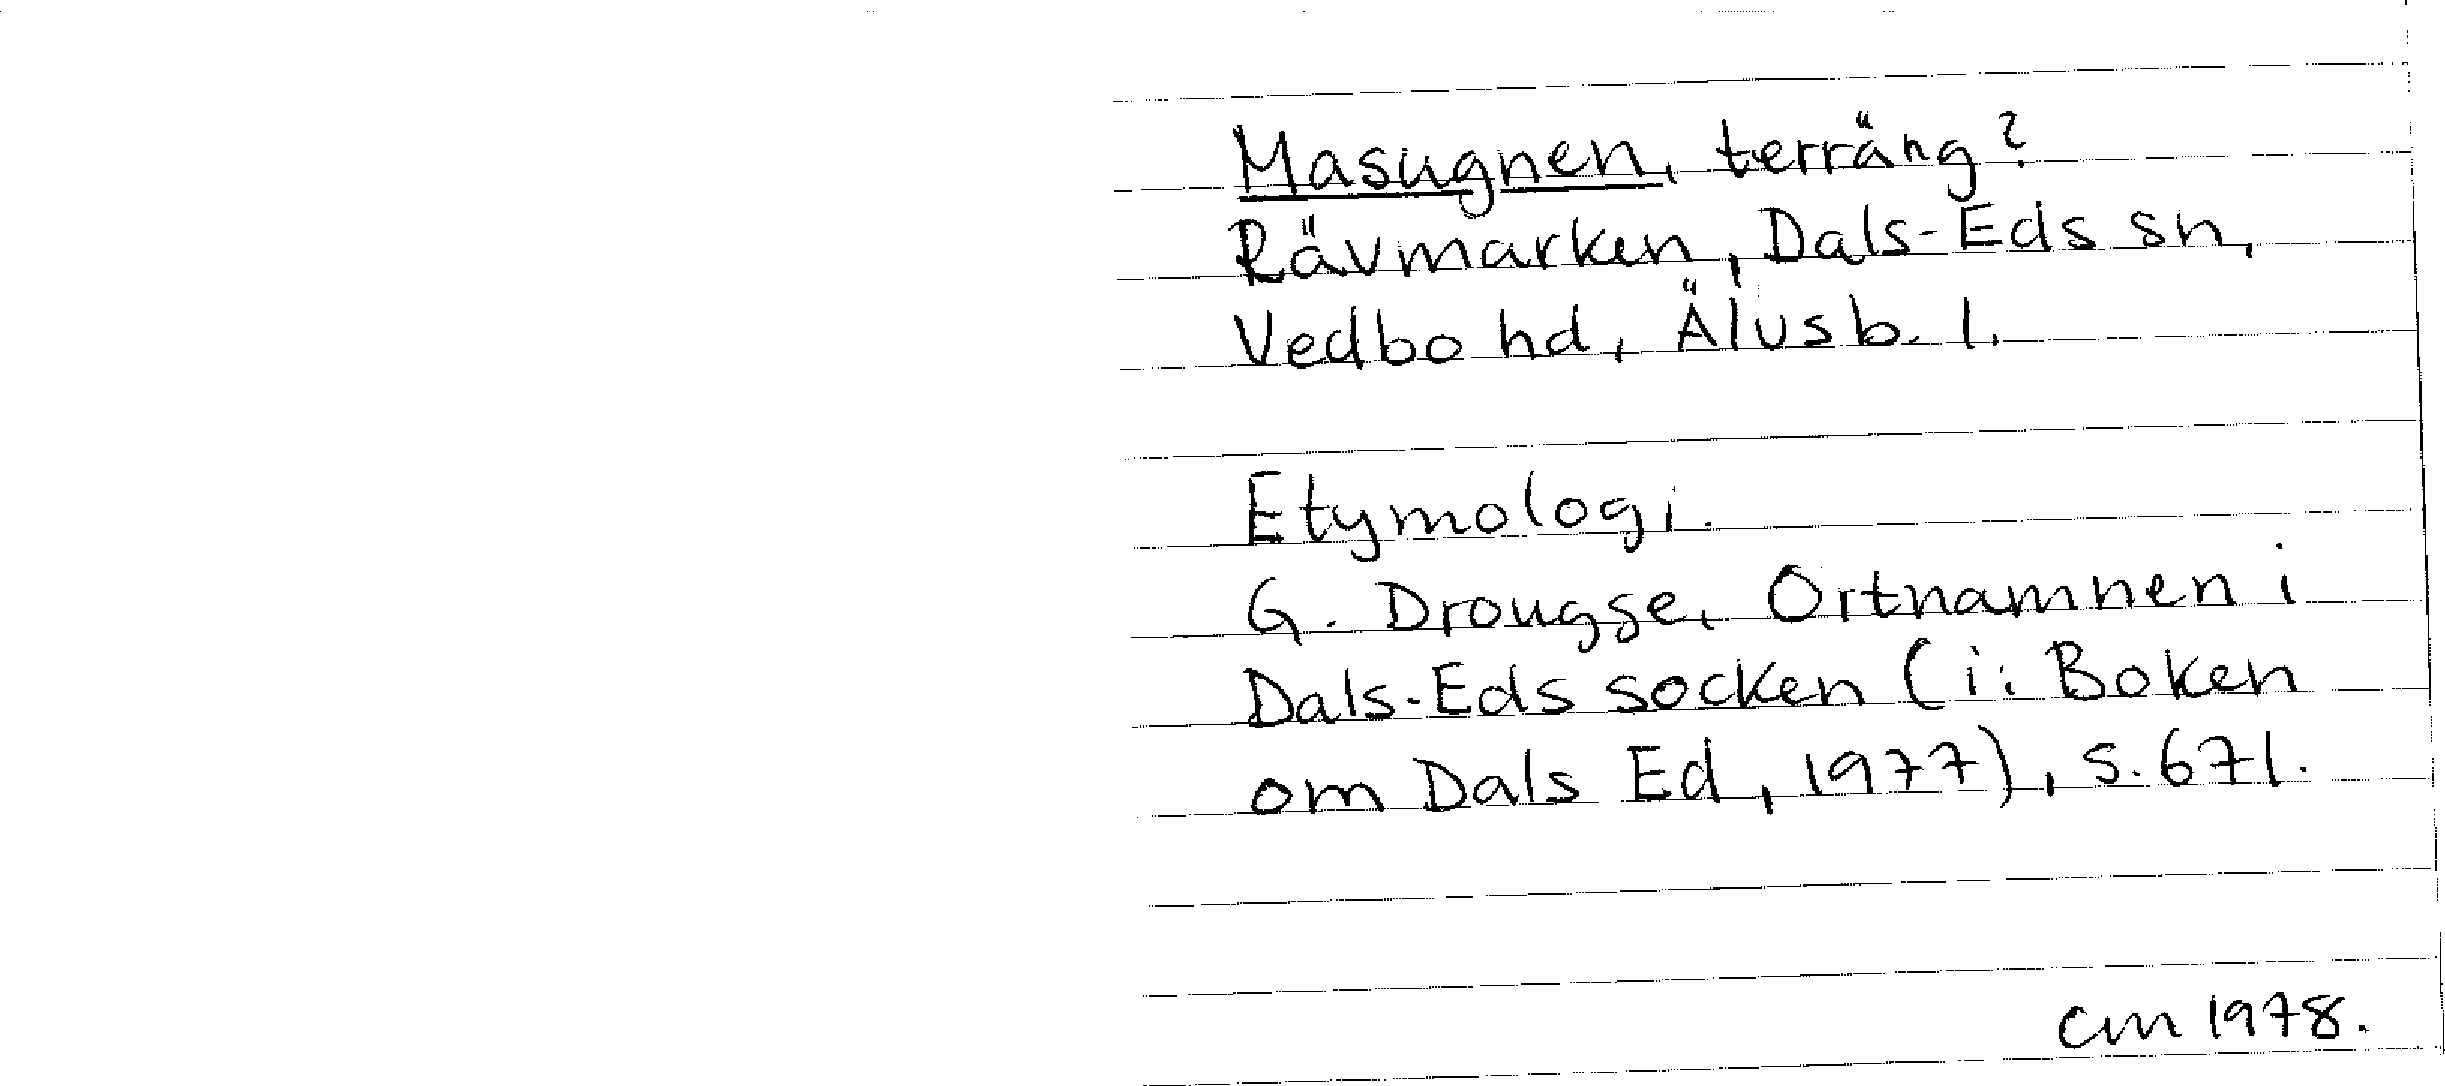 Masugnen, terräng?
Rävmarken, Dals-Eds sn,
Vedbo hd, Älvsb. l.
Etymologi.
G. Drougse, Ortnamnen i
Dals-Eds socken (i: Boken
om Dals Ed, 1977), s. 671.
CM 1978.